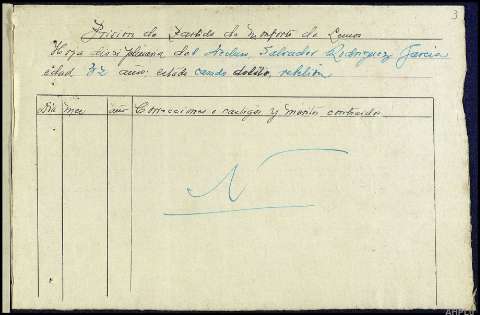 3
Prision de Partido de Monforte de Lemos
Hoja disciplinaria del recluso Salvador Rodriguez Garcia
edad 42 años estado casado delito, rebelión
Dia mes año Correcciones o castigos y meritos contraidos
N
AHPLU